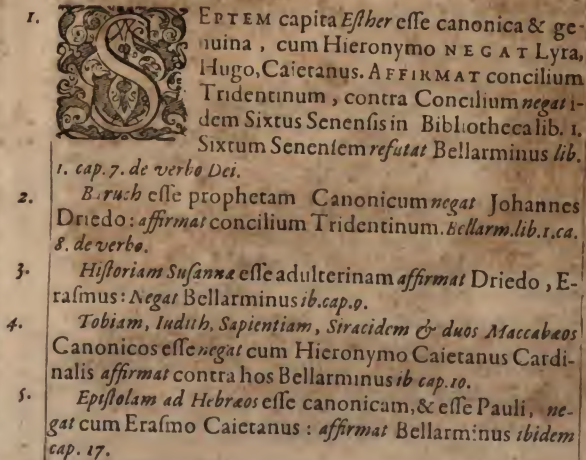 1. SEPTEM capita Esther esse canonica & ge-
nuina, cum Hieronymo NEGAT Lyra,
Hugo, Caietanus. AFFIRMAT concilium
Tridentinum, contra Concilium negat i-
dem Sixtus Senensis in Bibliotheca lib. 1.
Sixtum Senensem refutat Bellarminus lib.
1. cap. 7. de verbo Dei.
2. Baruch esse prophetam Canonicum negat Johannes
Driedo: affirmat concilium Tridentinum. Bellarm. lib. 1. ca.
8. de verbo.
3. Historiam Susannæ esse adulterinam affirmat Driedo, E-
rasmus: Negat Bellarminus ib. cap. 9.
4. Tobiam, Iudith, Sapientiam, Siracidem & duos Maccabæos
Canonicos esse negat cum Hieronymo Caietanus Cardi-
nalis affirmat contra hos Bellarminus ib cap. 10.
5. Epistolam ad Hebræos esse canonicam, & esse Pauli, ne-
gat cum Erasmo Caietanus: affirmat Bellarminus ibidem
cap. 17.